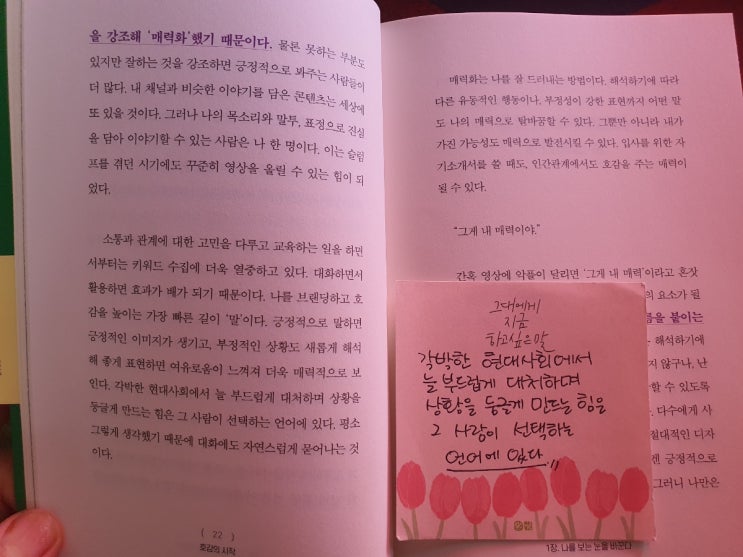 을 강조해 '매력화'했기 때문이다. 물론 못하는 부분도
있지만 잘하는 것을 강조하면 긍정적으로 봐주는 사람들이
더 많다. 내 채널과 비슷한 이야기를 담은 콘텐츠는 세상에
또 있을 것이다. 그러나 나의 목소리와 말투, 표정으로 진실
을 담아 이야기할 수 있는 사람은 나 한 명이다. 이는 슬럼
프를 겪던 시기에도 꾸준히 영상을 올릴 수 있는 힘이 되
었다.
소통과 관계에 대한 고민을 다루고 교육하는 일을 하면
서부터는 키워드 수집에 더욱 열중하고 있다. 대화하면서
활용하면 효과가 배가 되기 때문이다. 나를 브랜딩하고 호
감을 높이는 가장 빠른 길이 '말'이다. 긍정적으로 말하면
긍정적인 이미지가 생기고, 부정적인 상황도 새롭게 해석
해 좋게 표현하면 여유로움이 느껴져 더욱 매력적으로 보
인다. 각박한 현대사회에서 늘 부드럽게 대처하며 상황을
둥글게 만드는 힘은 그 사람이 선택하는 언어에 있다. 평소
그렇게 생각했기 때문에 대화에도 자연스럽게 묻어나는 것
이다.
( 22 )
호감의 시작
매력화는 나를 잘 드러내는 방법이다. 해석하기에 따라
다른 유동적인 행동이나, 부정성이 강한 표현까지 어떤 말
도 나의 매력으로 탈바꿈할 수 있다. 그뿐만 아니라 내가
가진 가능성도 매력으로 발전시킬 수 있다. 입사를 위한 자
기소개서를 쓸 때도, 인간관계에서도 호감을 주는 매력이
될 수 있다.
"그게 내 매력이야."
간혹 영상에 악플이 달리면 '그게 내 매력'이라고 혼잣
의 요소가 될
름을 붙이는
해석하기에
지 않구나, 난
할 수 있도록
다수에게 사
절대적인 디자
겐 긍정적으로
그러니 나만은
1장. 나를 보는 눈을 바꾼다
그대에게
지금
하고싶은말
각박한 현대사회에서
늘 부드럽게 대처하며
상황을 둥글게 만드는 힘은
그 사람이 선택하는
언어에 있다.,,